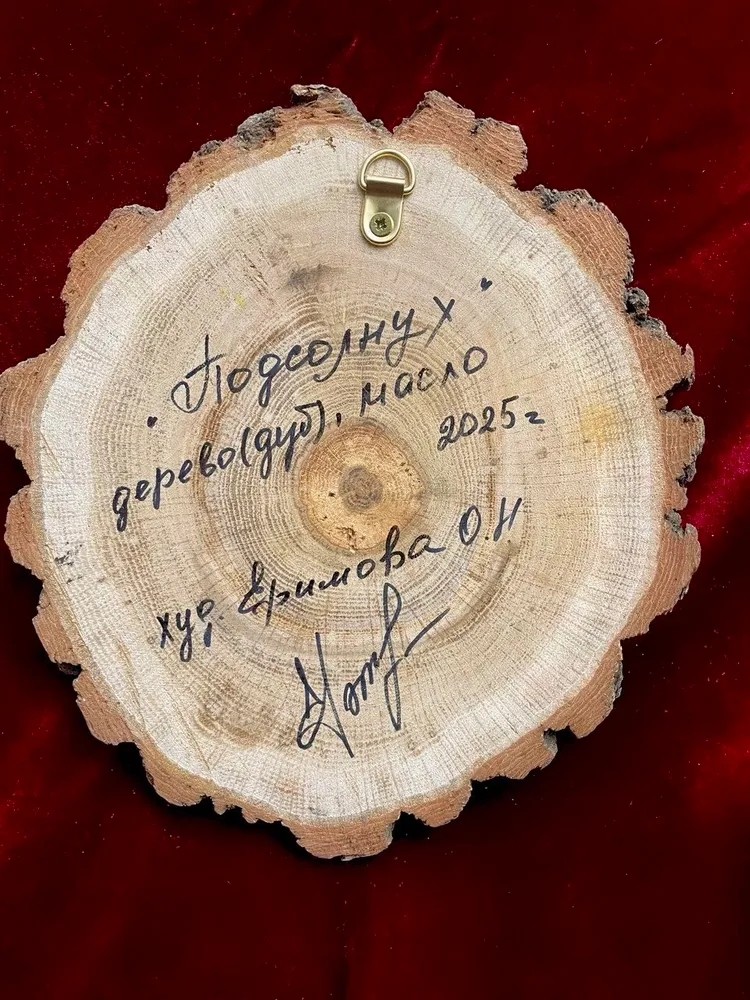 "Подсолнух"
дерево(дуб), масло
2025г
худ. Еримова О.Н